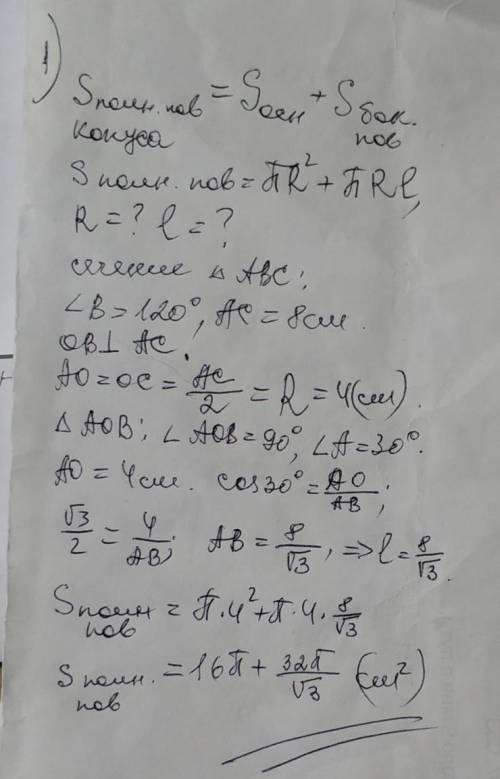 1)
Sполн.пов = Sосн + Sбок.
конуса пов
Sполн.пов = πR² + πRl,
R = ? l = ?
сечение △ ABC;
∠B = 120°, AC = 8см.
OB⊥ AC.
AO = OC = AC/2 = R = 4(см).
△ AOB; ∠ AOB = 90°, ∠A = 30°.
AO = 4см. cos30° = AO/AB;
√3/2 = 4/AB; AB = 8/√3, ⇒ l = 8/√3.
Sполн пов = π·4² + π·4·8/√3
Sполн. пов = 16π + 32π/√3 (см²)